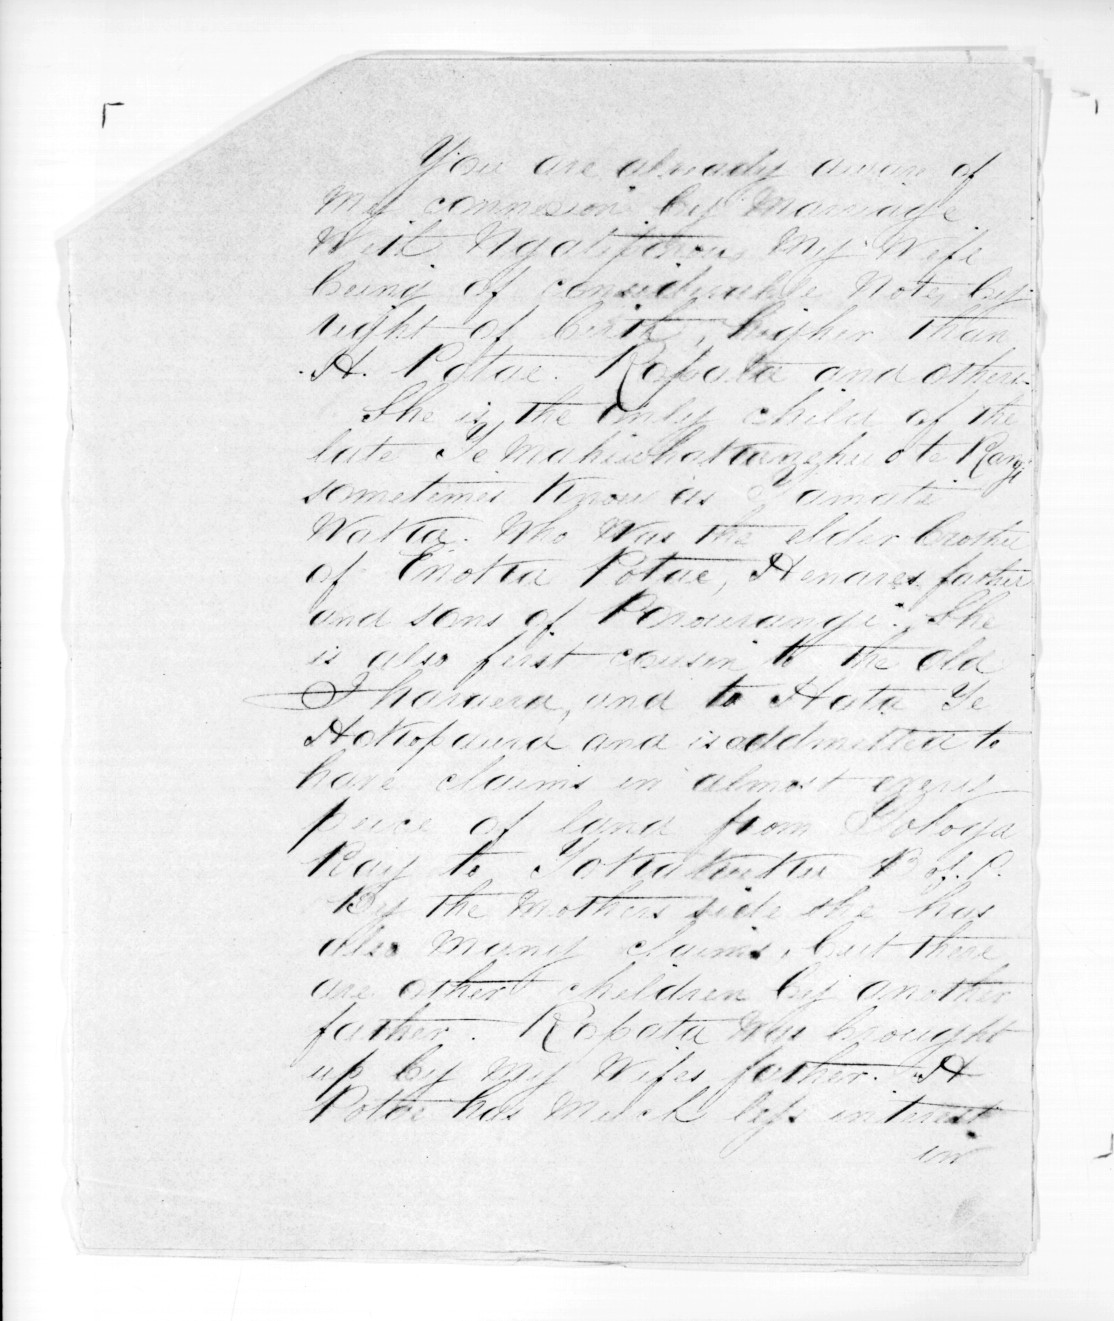 You are already aware of
my connexion by Marriage
With Ngatiporou, My Wife
being of considerable Note, by
right of birth, higher than
H. Potae. Ropata and others.
She is, the only child of the
late Te o te Rangi
sometimes Know as Tamati
Watta. Who Was the elder brother
of Enoka Potae, Henares father
and sons of Porourangi. She
is also first cousin to the old
Iharaera, and to Hata Te
and is addmitted to
have claims in almost every
peice of land from Tologa
Bay to B of P.
By the mothers side she has
also many claims, but there
are other children by another
father. Ropata Was brought
up by My Wifes father. H
Potae has Much less interest
in